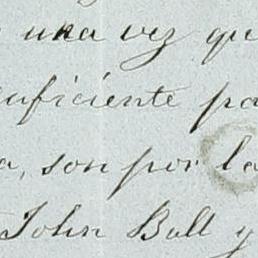 una vez que
suficiente pa
a, son por la
John Bull y